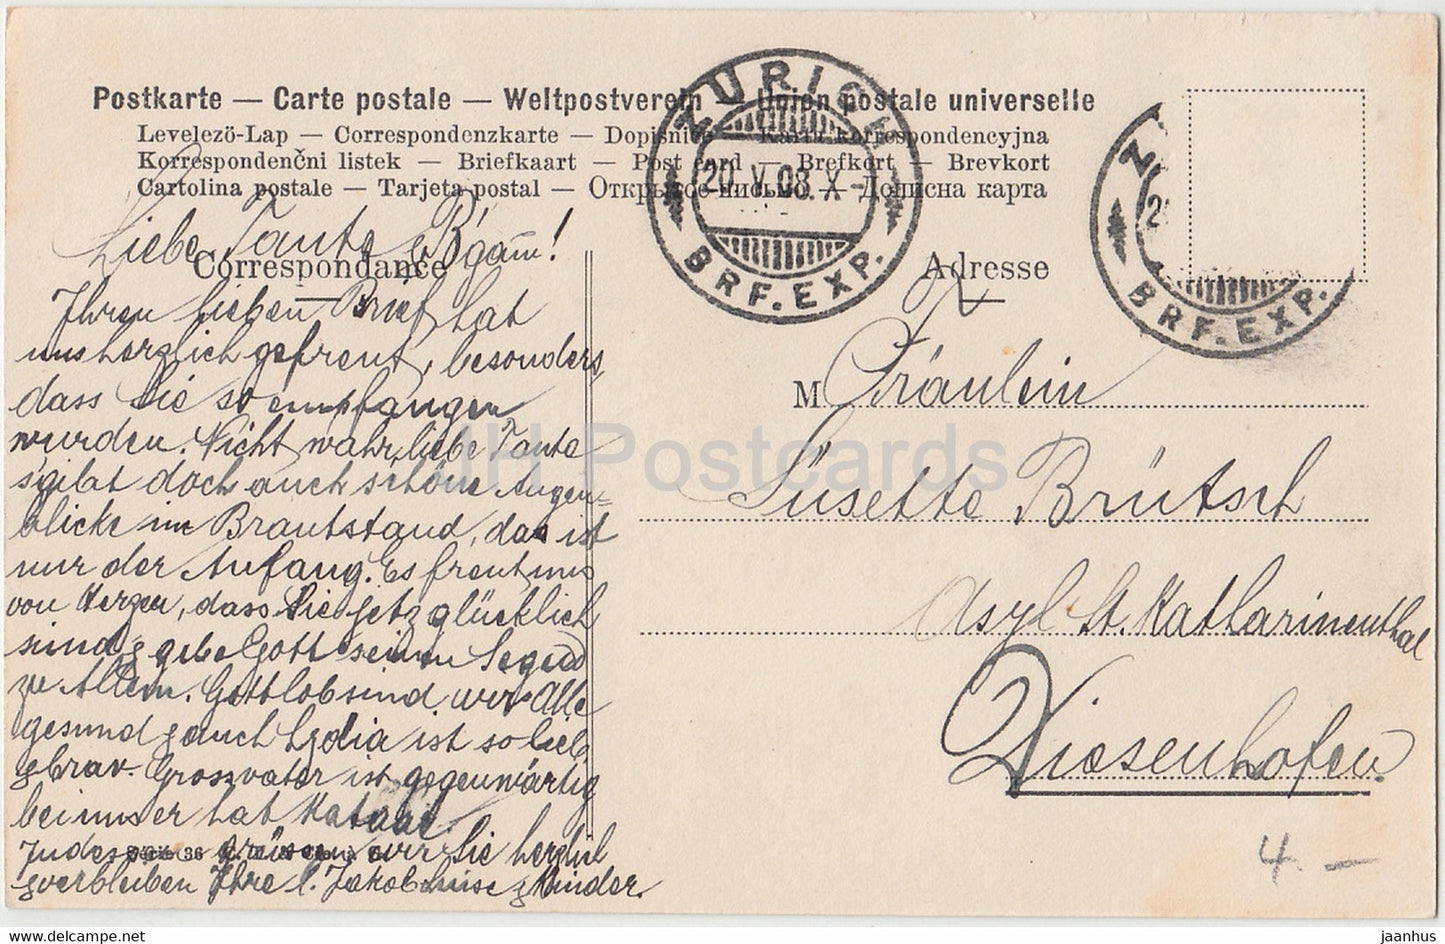 Postkarte — Carte postale — Weltpostverein — Union postale universelle
Levelező-Lap — Correspondenzkarte — Dopisnice — Karta korrespondencyjna
Korrespondenčni listek — Briefkaart — Post card — Brefkort — Brevkort
Cartolina postale — Tarjeta postal — Открытое письмо — Дописна карта
ZURICH
20.V.08.X-
BRF. EXP.
Z
2
BRF. EXP.
Correspondance
Adresse
Liebe Tante &
Ihren lieben Brief hat
uns herzlich gefreut, besonders,
dass Sie so empfangen
wurden. Nicht wahr, liebe Tante
s'gibt doch auch schöne Augen=
blicke im Brautstand, das ist
nur der Anfang. Es freut uns
von Herzen, dass Sie jetz glücklich
sind & gebe Gott seinen Segen
zu Allem. Gottlob sind wir Alle
gesund & auch Lydia ist so lieb
& brav. Grossvater ist gegenwärtig
bei uns er hat
Indes grüssen wir Sie herzlich
& verbleiben Ihre l. Jakob Luise & Kinder.
Serie 36
M Fräulein
Süsette Brütsch
Asyl St. Katharinenthal
Diesenhofen.
4. —
JH Postcards
www.hippostcard.com
jaanhus